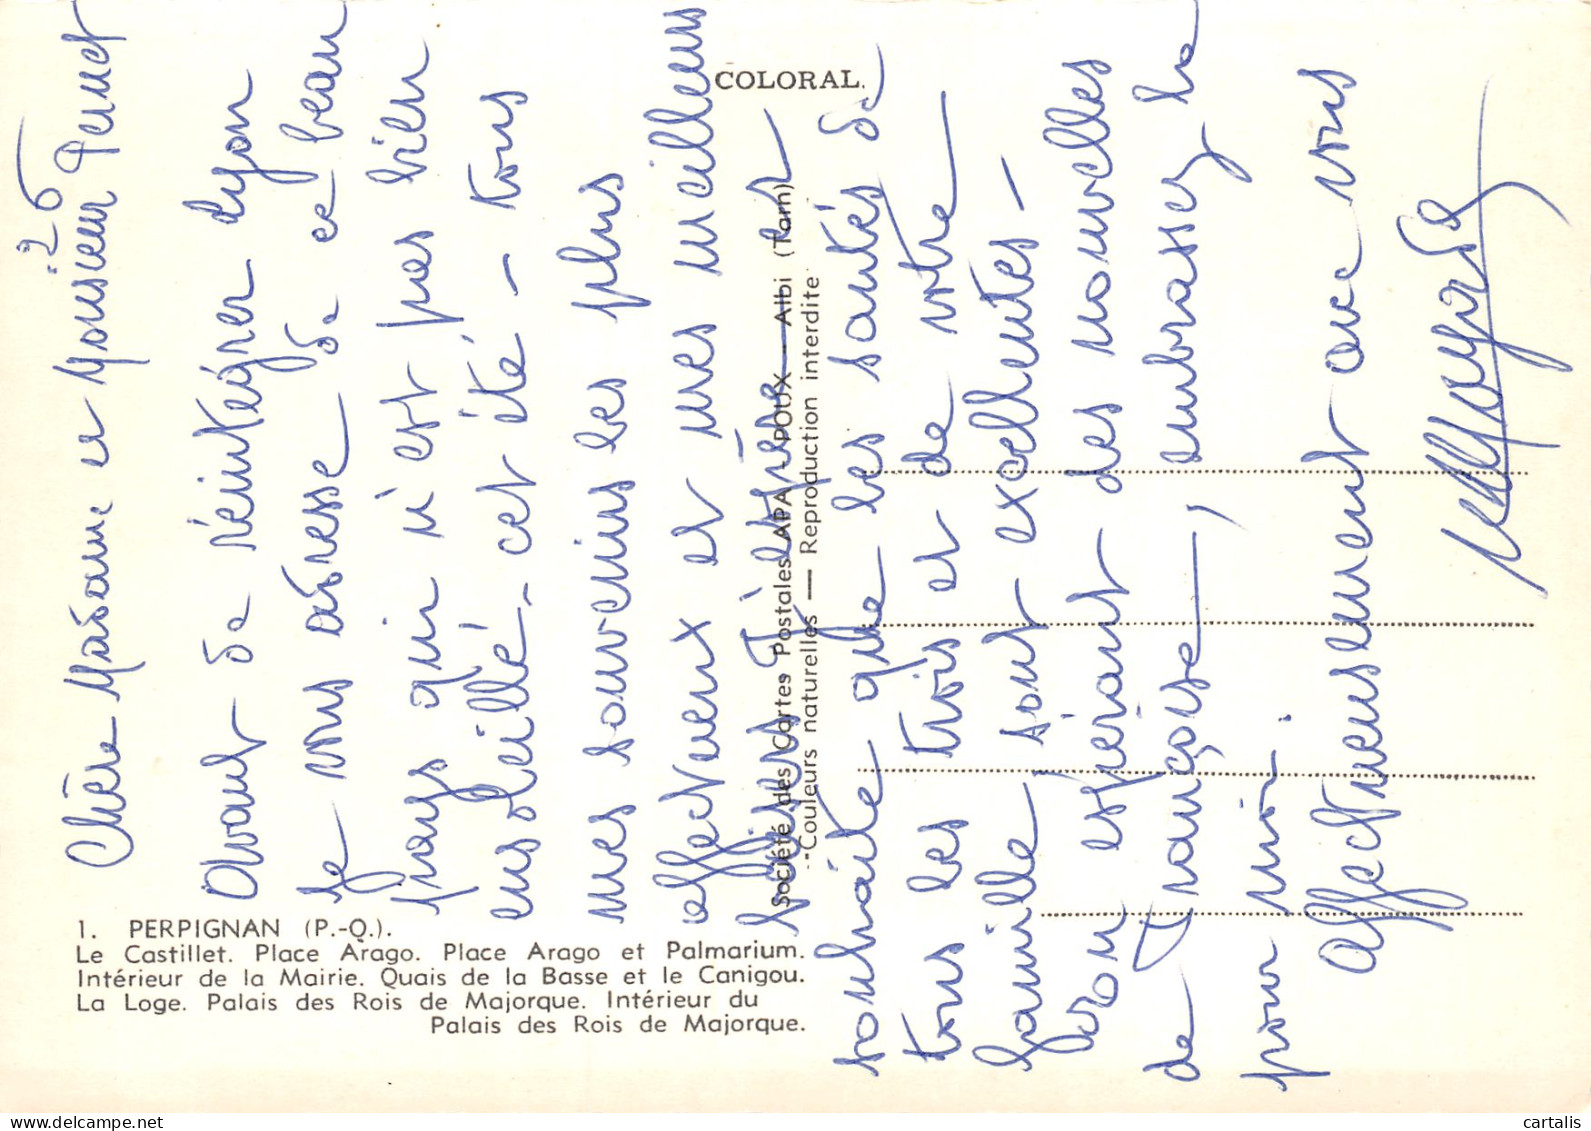 -26
Chère Madame et Monsieur Pernet
Avant de réintégrer Lyon
je vous adresse de ce beau
pays qui n'est pas bien
ensoleillé - cet été, - tous
mes souvenirs les plus
affectueux et mes meilleurs
baisers J'espère et
souhaite que les santés de
tous les trois et de votre
famille sont excellentes -
Bon espérant des nouvelles
de Françoise, embrassez la
pour moi.
Affectueusement avec vous
COLORAL.
Société des Cartes Postales APA-POUX — Albi (Tarn)
"Couleurs naturelles — Reproduction interdite
1. PERPIGNAN (P.-O.).
Le Castillet. Place Arago. Place Arago et Palmarium.
Intérieur de la Mairie. Quais de la Basse et le Canigou.
La Loge. Palais des Rois de Majorque. Intérieur du
Palais des Rois de Majorque.
cartalis